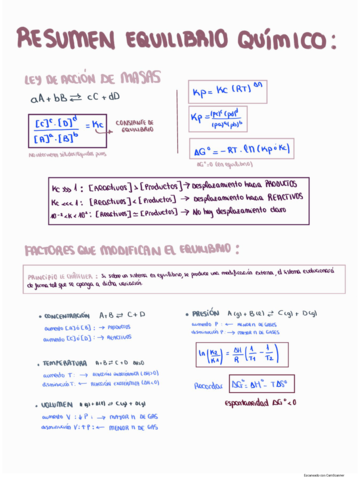 RESUMEN EQUILIBRIO QUÍMICO:
LEY DE ACCIÓN DE MASAS
aA + bB ⇄ cC + dD
[C]ᶜ · [D]ᵈ / [A]ᵃ · [B]ᵇ = Kc
CONSTANTE DE EQUILIBRIO
Kp = Kc (RT)^Δn
Kp =
ΔGº = -RT · ln (Kp ó Kc)
Kc >> 1 : [Reactivos] > [Productos] → Desplazamiento hacia PRODUCTOS
Kc <<< 1 : [Reactivos] < [Productos] → Desplazamiento hacia REACTIVOS
[Reactivos] ≃ [Productos] → No hay desplazamiento claro
FACTORES QUE MODIFICAN EL EQUILIBRIO:
PRINCIPIO LE CHATELIER : Si sobre un sistema en equilibrio, se produce una modificación externa, el sistema evolucionará
de forma tal que se oponga a dicha variación
• CONCENTRACIÓN A+B ⇄ C+D
aumento [A] ó [B] : → PRODUCTOS
aumento [C] ó [D] : → REACTIVOS
• TEMPERATURA A+B ⇄ C+D
aumento T : → REACCIÓN ENDOTÉRMICA (ΔH>0)
disminución T : ← REACCIÓN EXOTÉRMICA (ΔH<0)
• VOLUMEN A(g) + B(l) ⇄ C(g) + D(g)
aumento V : ↓P : → MAYOR n DE GAS
disminución V : ↑P : ← MENOR n DE GAS
• PRESIÓN A(g) + B(l) ⇄ C(g) + D(g)
aumento P : ← MENOR n DE GASES
disminución P → MAYOR n DE GASES
ln (K2/K1) = ΔH/R (1/T1 - 1/T2)
Recordar: ΔGº = ΔHº - TΔSº
espontaneidad ΔGº < 0
Escaneado con CamScanner